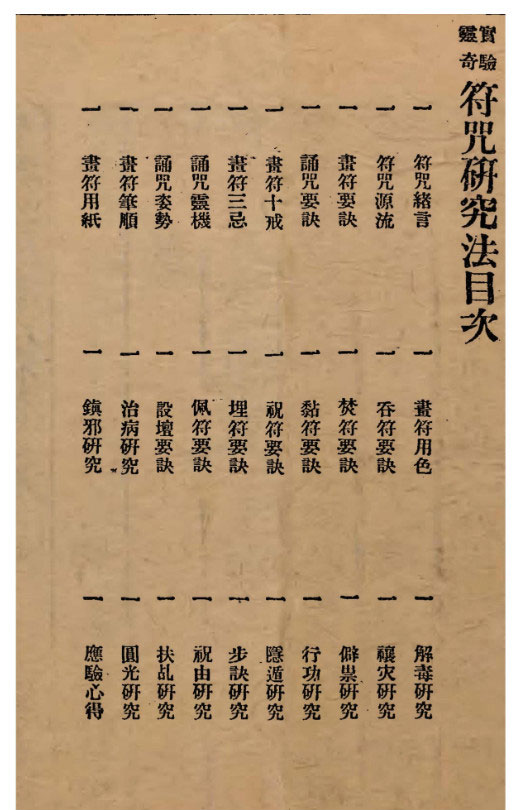 實驗靈奇
符咒研究法目次
一 符咒緒言
一 符咒源流
一 畫符要訣
一 誦咒要訣
一 畫符十戒
一 畫符三忌
一 誦咒靈機
一 誦咒姿勢
一 畫符筆順
一 畫符用紙
一 畫符用色
一 吞符要訣
一 焚符要訣
一 黏符要訣
一 祝符要訣
一 埋符要訣
一 佩符要訣
一 設壇要訣
一 治病研究
一 鎮邪研究
一 解毒研究
一 禳灾研究
一 僻祟研究
一 行功研究
一 隱遁研究
一 步訣研究
一 祝由研究
一 扶乩研究
一 圓光研究
一 應驗心得